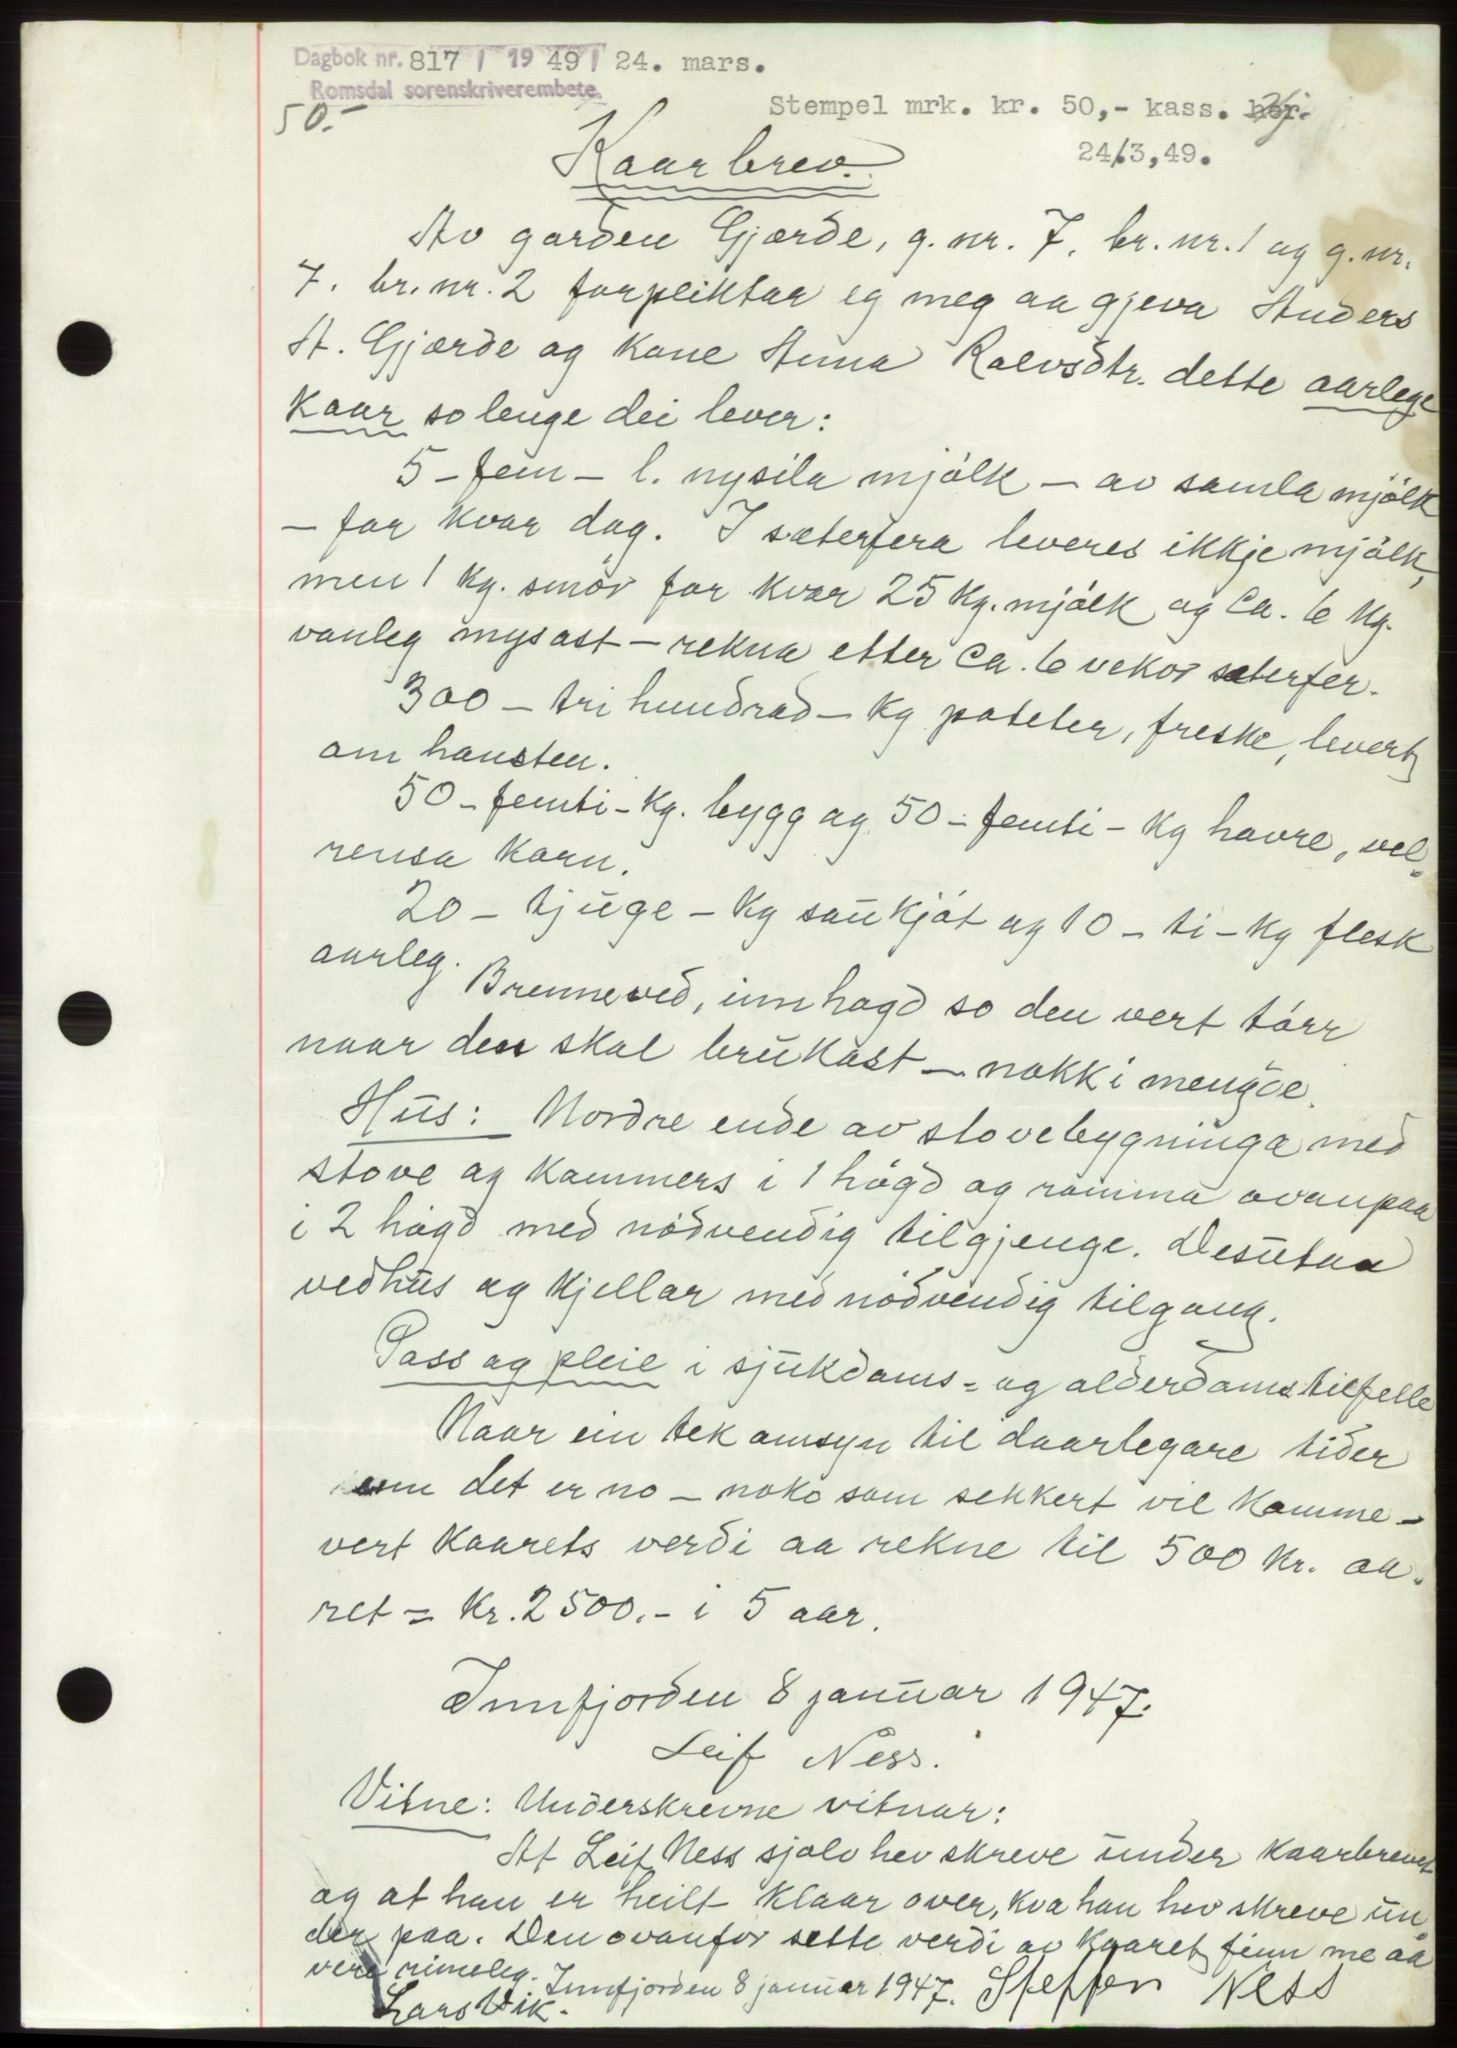 Dagbok nr. 817 / 19 49 / 24. mars.
Romsdal sorenskriverembete.
50.-
Stempel mrk. kr. 50,- kass. her.
24/.3,49.
Kaarbrev.
Av garden Gjærde, g. nr. 7, br. nr. 1 og g. nr.
7. br. nr. 2 forpliktar eg meg aa gjeva Anders
A. Gjærde og kone Anna Rolvsdtr. dette aarlege
kaar so lenge dei lever:
5 - fem - l. nysila mjölk - av samla mjölk
- for kvar dag. I sæterfera leveres ikkje mjölk,
men 1 kg. smör for kvar 25 kg. mjölk og ca. 6 kg.
vanleg mysost - rekna etter ca. 6 vekor sæterfer.
300 - tri hundrad - kg poteter, friske, levert
om hausten.
50 - femti - kg. bygg og 50 - femti - kg havre, vel-
rensa korn.
20 - tjuge - kg saukjöt og 10 - ti - kg flesk
aarleg.
Brenneved, innhogd so den vert törr
naar den skal brukast - nokk i mengde.
Hus: Nordre ende av stovebygninga med
stove og kammers i 1 högd og romma ovanpaa
i 2 högd med nödvendig tilgjenge. Desutan
vedhus og kjellar med nödvendig tilgang.
Pass og pleie i sjukdoms- og alderdomstilfelle
Naar ein tek omsyn til daarlegare tider
enn det er no - noko som sekkert vil komme -
vert kaarets verdi aa rekne til 500 kr. aa-
ret = kr. 2500.- i 5 aar.
Innfjorden 8 januar 1947.
Leif Ness.
Vitne: Underskrevne vitnar:
At Leif Ness sjølv hev skreve under kaarbrevet
og at han er heilt klaar over, kva han hev skreve un-
der paa. Den ovanfor sette verdi av kaaret finn me aa
vere rimeleg. Innfjorden 8 januar 1947. Steffen Ness
Lars Vik.